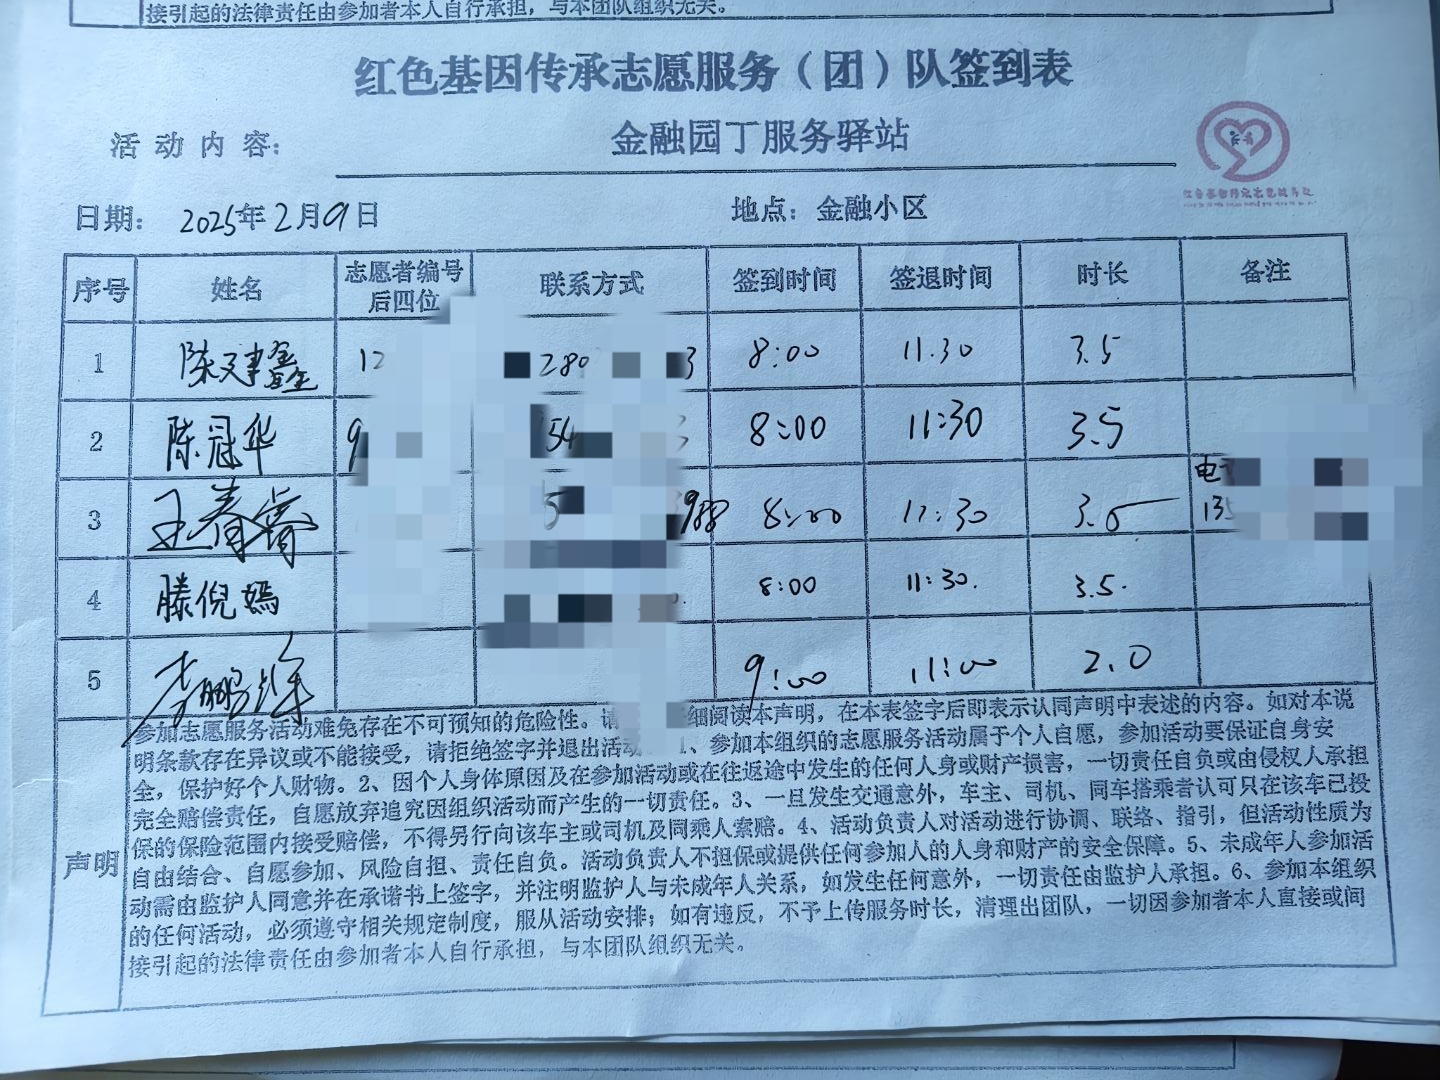 接引起的法律责任由参加者本人自行承担，与本团队组织无关。
红色基因传承志愿服务（团）队签到表
活动内容： 金融园丁服务驿站
日期： 2025年2月9日 地点：金融小区
序号 姓名 志愿者编号后四位 联系方式 签到时间 签退时间 时长 备注
1 陈建鑫 12 280 3 8:00 11.30 3.5
2 陈冠华 9 54 8:00 11:30 3.5
3 王春睿 5 988 8:00 11:30 3.5 电 135
4 滕倪嫣 8:00 11:30. 3.5.
5 李鹏 9:00 11:00 2.0
声明
参加志愿服务活动难免存在不可预知的危险性。请 细阅读本声明，在本表签字后即表示认同声明中表述的内容。如对本说
明条款存在异议或不能接受，请拒绝签字并退出活动 1、参加本组织的志愿服务活动属于个人自愿，参加活动要保证自身安
全，保护好个人财物。2、因个人身体原因及在参加活动或在往返途中发生的任何人身或财产损害，一切责任自负或由侵权人承担
完全赔偿责任，自愿放弃追究因组织活动而产生的一切责任。3、一旦发生交通意外，车主、司机、同车搭乘者认可只在该车已投
保的保险范围内接受赔偿，不得另行向该车主或司机及同乘人索赔。4、活动负责人对活动进行协调、联络、指引，但活动性质为
自由结合、自愿参加、风险自担、责任自负。活动负责人不担保或提供任何参加人的人身和财产的安全保障。5、未成年人参加活
动需由监护人同意并在承诺书上签字，并注明监护人与未成年人关系，如发生任何意外，一切责任由监护人承担。6、参加本组织
的任何活动，必须遵守相关规定制度，服从活动安排；如有违反，不予上传服务时长，清理出团队，一切因参加者本人直接或间
接引起的法律责任由参加者本人自行承担，与本团队组织无关。